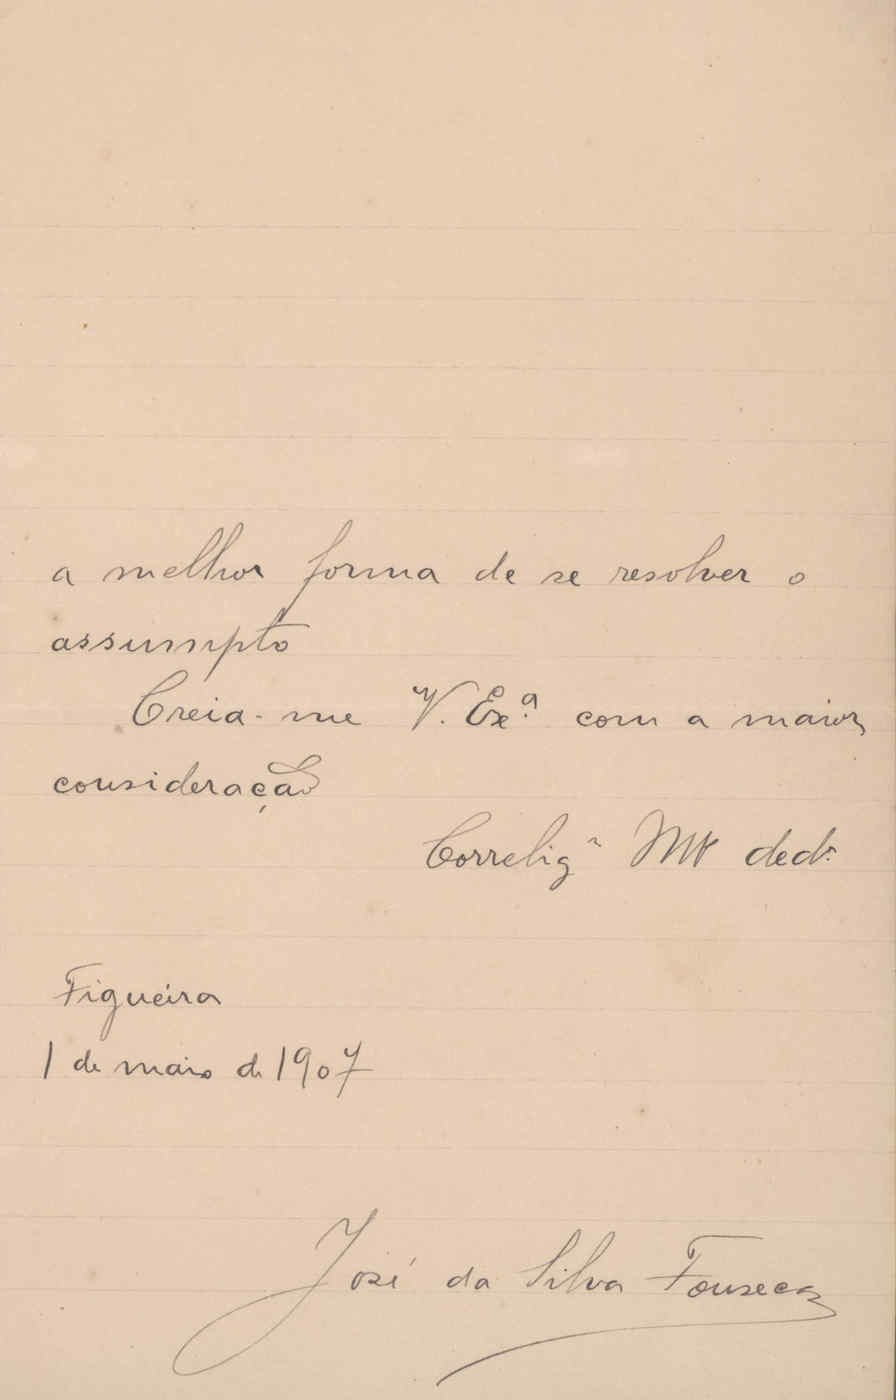 a melhor forma de se resolver o
assumpto
Creia-me V. Ex.ª com a maior
consideração
Correligº Mtº dedº
Figueira
1 de maio de 1907
José da Silva Fonseca